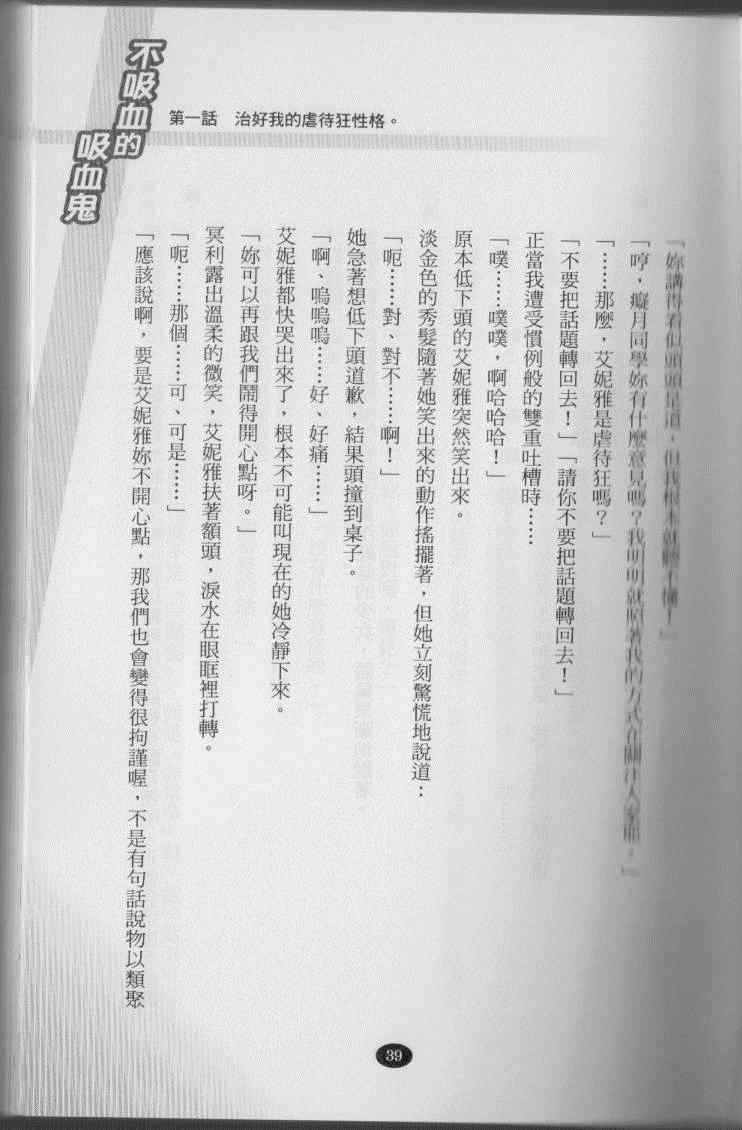 不吸血的
吸血鬼
第一話　治好我的虐待狂性格。
「妳講得看似頭頭是道，但我根本就聽不懂！」
「哼，癡月同學妳有什麼意見嗎？我明明就照著我的方式在關注人家耶。」
「……那麼，艾妮雅是虐待狂嗎？」
「不要把話題轉回去！」「請你不要把話題轉回去！」
正當我遭受慣例般的雙重吐槽時……
「噗……噗噗，啊哈哈哈！」
原本低下頭的艾妮雅突然笑出來。
淡金色的秀髮隨著她笑出來的動作搖擺著，但她立刻驚慌地說道：
「呃……對、對不……啊！」
她急著想低下頭道歉，結果頭撞到桌子。
「啊、嗚嗚嗚……好、好痛……」
艾妮雅都快哭出來了，根本不可能叫現在的她冷靜下來。
「妳可以再跟我們鬧得開心點呀。」
冥利露出溫柔的微笑，艾妮雅扶著額頭，淚水在眼眶裡打轉。
「呃……那個……可、可是……」
「應該說啊，要是艾妮雅妳不開心點，那我們也會變得很拘謹喔，不是有句話說物以類聚
39